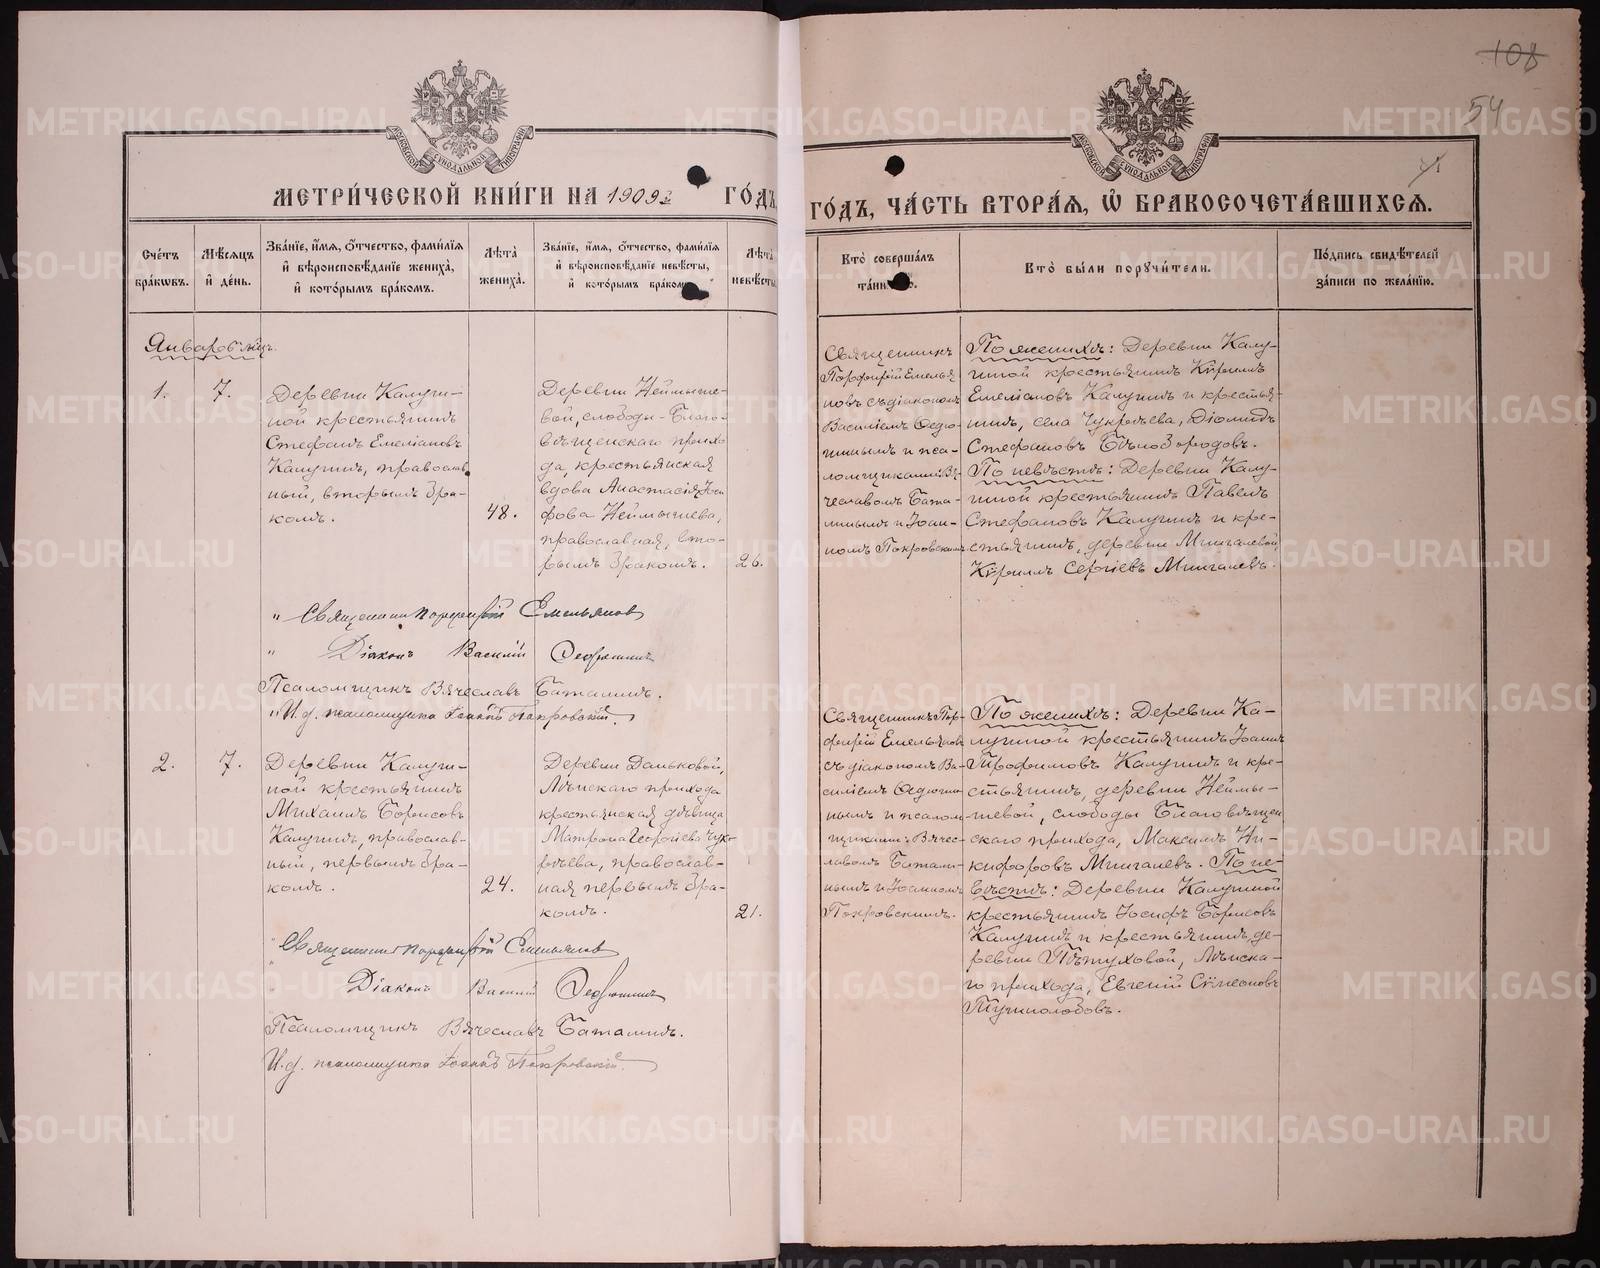 108
54
МЕТРИ́ЧЕСКОЙ КНИ́ГИ НА 1909й ГО́ДЪ
ГО́ДЪ, ЧА́СТЬ ВТОРА́Я, Ѡ҆ БРАКОСОЧЕТА́ВШИХСЯ.
Сче́тъ бра́ковъ.
Мѣ́сяцъ и҆ де́нь.
Зва́нїе, и҆́мя, ѻ҆́тчество, фами́лїя и҆ вѣроисповѣ́данїе жениха̀, и҆ кото́рымъ бра́комъ.
Лѣта̀ жениха̀.
Зва́нїе, и҆́мя, ѻ҆́тчество, фами́лїя и҆ вѣроисповѣ́данїе невѣ́сты, и҆ кото́рымъ бра́комъ
Лѣта̀ невѣ́сты
Кто̀ соверша́лъ
Кто̀ бы́ли порꙋчи́тели.
По́дпись свидѣ́телей за́писи по жела́нїю.
Январь м҃цъ.
1.
7.
Деревни Калуги-
ной крестьянинъ
Стефанъ Емеліановъ
Калугинъ, православ
ный, вторымъ бра-
комъ.
48.
Деревни Неймыше-
вой, слободы-Благо-
вѣщенскаго прихо-
да, крестьянская
вдова Анастасія Іоси
фова Неймышева,
православная, вто-
рымъ бракомъ.
26.
Священникъ
Порфирій Емелья
новъ съ діакономъ
Василіемъ Ѳедю-
шинымъ и пса-
ломщиками: Вя-
чеславомъ Бата-
линымъ и Іоан-
номъ Покровскимъ
По женихѣ: Деревни Калу-
гиной крестьянинъ Кѵриллъ
Емеліановъ Калугинъ и крестья-
нинъ, села Чукреева, Діомидъ
Стефановъ Бѣлобородовъ.
По невѣстѣ: Деревни Калу-
гиной крестьянинъ Павелъ
Стефановъ Калугинъ и кре-
стьянинъ, деревни Мингалевой,
Кѵриллъ Сергіевъ Мингалевъ.
" Священникъ Порфирій Емельянов
" Діаконъ Василій Ѳедюшинъ
Псаломщикъ Вячеславъ Баталинъ.
" И. д. псаломщика Іоаннъ Покровскій.
2.
7.
Деревни Калуги-
ной крестьянинъ
Михаилъ Борисовъ
Калугинъ, православ-
ный, первымъ бра-
комъ.
24.
Деревни Даньковой,
прихода
крестьянская дѣвица
Матрона Георгіева Чук-
рѣева, православ-
ная первымъ бра-
комъ.
21.
Священникъ Пор-
фирій Емельяновъ
съ діакономъ Ва-
силіемъ Ѳедюши-
нымъ и псалом-
щиками: Вячес-
лавомъ Батали-
нымъ и Іоанномъ
Покровскимъ.
По женихѣ: Деревни Ка-
лугиной крестьянинъ Іоаннъ
Трофимовъ Калугинъ и кре-
стьянинъ, деревни Неймы-
шевой, слободы Благовѣщен
скаго прихода, Максимъ Ни-
кифоровъ Мингалевъ. По не-
вѣстѣ: Деревни Калугиной
крестьянинъ Іосифъ Борисовъ
Калугинъ и крестьянинъ, де-
ревни Пѣтуховой,
го прихода, Евгеній Сѵмеоновъ
Тучнолобовъ.
" Священникъ Порфирій Емельянов
Діаконъ Василій Ѳедюшинъ
Псаломщикъ Вячеславъ Баталинъ.
И. д. псаломщика Іоаннъ Покровскій.